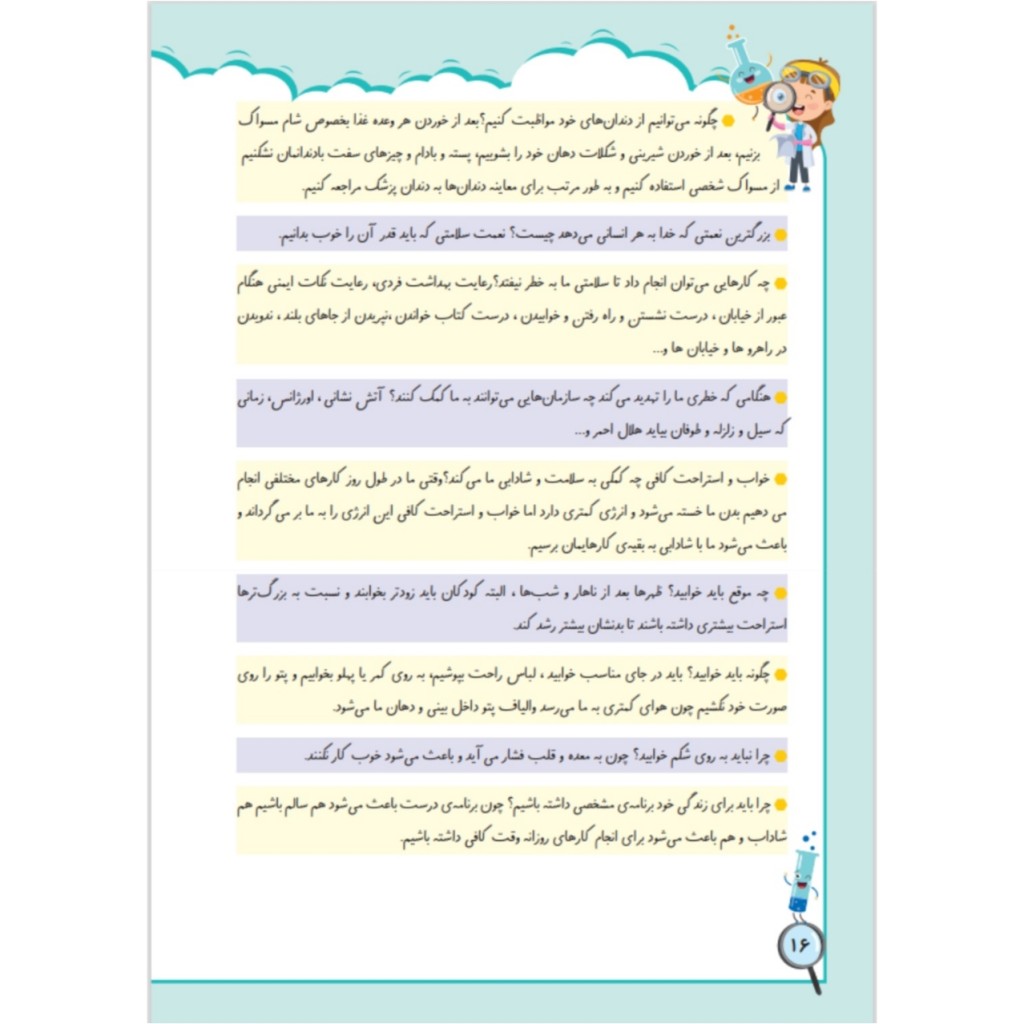 چگونه می‌توانیم از دندان‌های خود مواظبت کنیم؟بعد از خوردن هر وعده غذا بخصوص شام مسواک
بزنیم، بعد از خوردن شیرینی و شکلات دهان خود را بشوییم، پسته و بادام و چیزهای سفت بادندانمان نشکنیم
از مسواک شخصی استفاده کنیم و به طور مرتب برای معاینه دندان‌ها به دندان پزشک مراجعه کنیم.
بزرگترین نعمتی که خدا به هر انسانی می‌دهد چیست؟ نعمت سلامتی که باید قدر آن را خوب بدانیم.
چه کارهایی می‌توان انجام داد تا سلامتی ما به خطر نیفتد؟رعایت بهداشت فردی، رعایت نکات ایمنی هنگام
عبور از خیابان ، درست نشستن و راه رفتن و خوابیدن ، درست کتاب خواندن ،نپریدن از جاهای بلند ، ندویدن
در راهرو ها و خیابان ها و...
هنگامی که خطری ما را تهدید می‌کند چه سازمان‌هایی می‌توانند به ما کمک کنند؟ آتش نشانی ، اورژانس، زمانی
که سیل و زلزله و طوفان بیاید هلال احمر و...
خواب و استراحت کافی چه کمکی به سلامت و شادابی ما می‌کند؟وقتی ما در طول روز کارهای مختلفی انجام
می دهیم بدن ما خسته می‌شود و انرژی کمتری دارد اما خواب و استراحت کافی این انرژی را به ما بر می‌گرداند و
باعث می‌شود ما با شادابی به بقیه‌ی کارهایمان برسیم.
چه موقع باید خوابید؟ ظهرها بعد از ناهار و شب‌ها ، البته کودکان باید زودتر بخوابند و نسبت به بزرگ‌ترها
استراحت بیشتری داشته باشند تا بدنشان بیشتر رشد کند.
چگونه باید خوابید؟ باید در جای مناسب خوابید ، لباس راحت بپوشیم، به روی کمر یا پهلو بخوابیم و پتو را روی
صورت خود نکشیم چون هوای کمتری به ما می‌رسد والیاف پتو داخل بینی و دهان ما می‌شود.
چرا نباید به روی شکم خوابید؟ چون به معده و قلب فشار می آید و باعث می‌شود خوب کار نکنند.
چرا باید برای زندگی خود برنامه‌ی مشخصی داشته باشیم؟ چون برنامه‌ی درست باعث می‌شود هم سالم باشیم هم
شاداب و هم باعث می‌شود برای انجام کارهای روزانه وقت کافی داشته باشیم.
۱۶